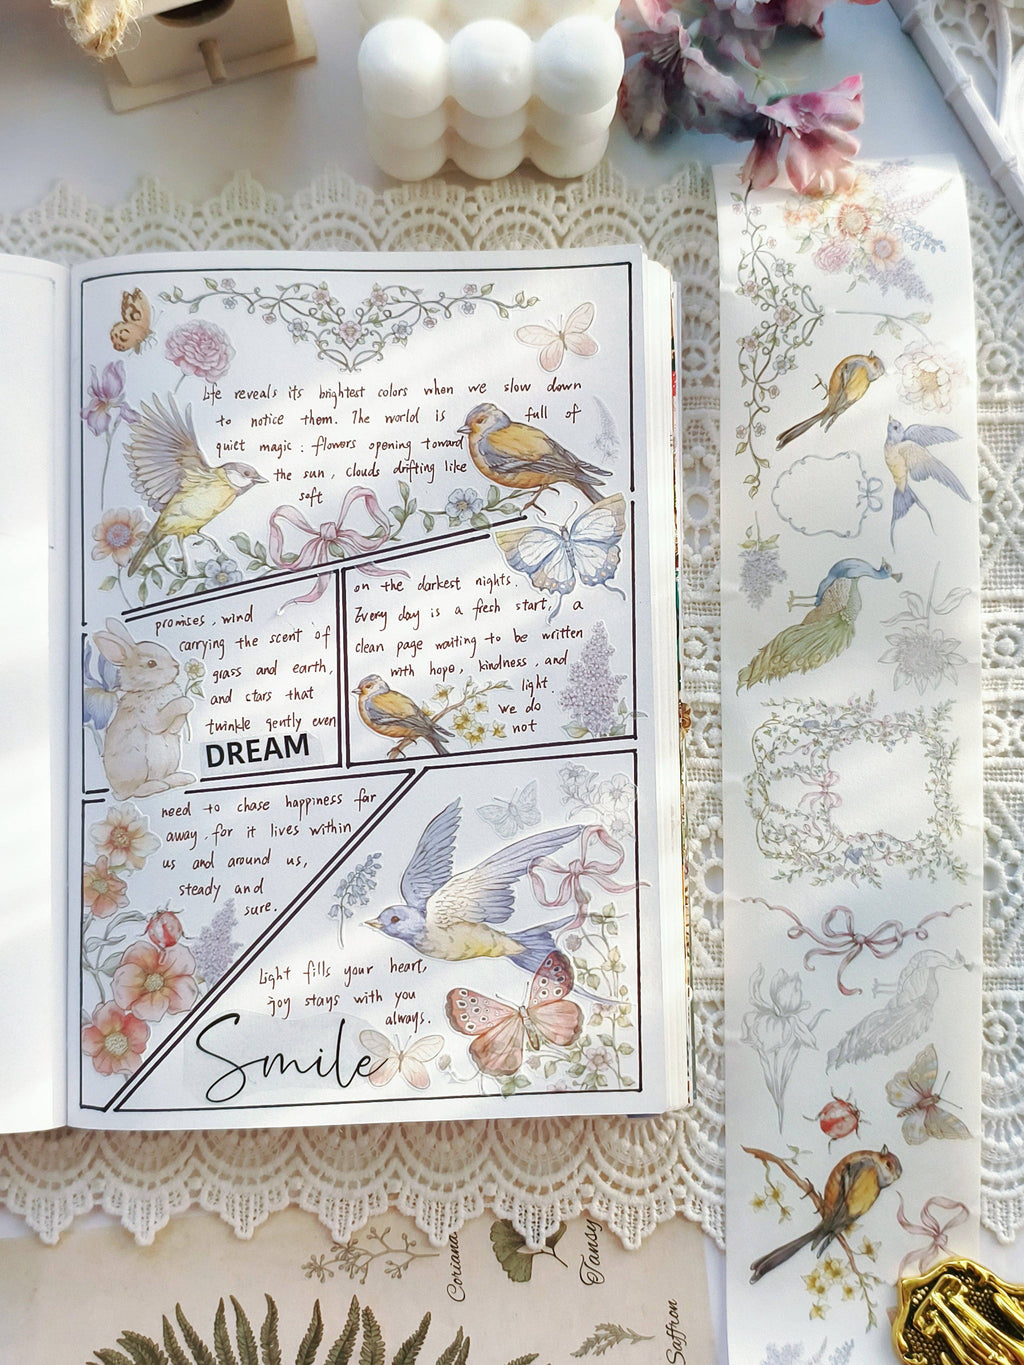 Life reveals its brightest colors when we slow down
to notice them. The world is full of
quiet magic : flowers opening toward
the sun, clouds drifting like
soft
promises, wind
carrying the scent of
grass and earth,
and stars that
twinkle gently even
DREAM
on the darkest nights.
Every day is a fresh start, a
clean page waiting to be written
with hope, kindness, and
light.
we do
not
need to chase happiness far
away, for it lives within
us and around us,
steady and
sure.
Light fills your heart,
joy stays with you
always.
Smile
Coriana
Tansy
Saffron